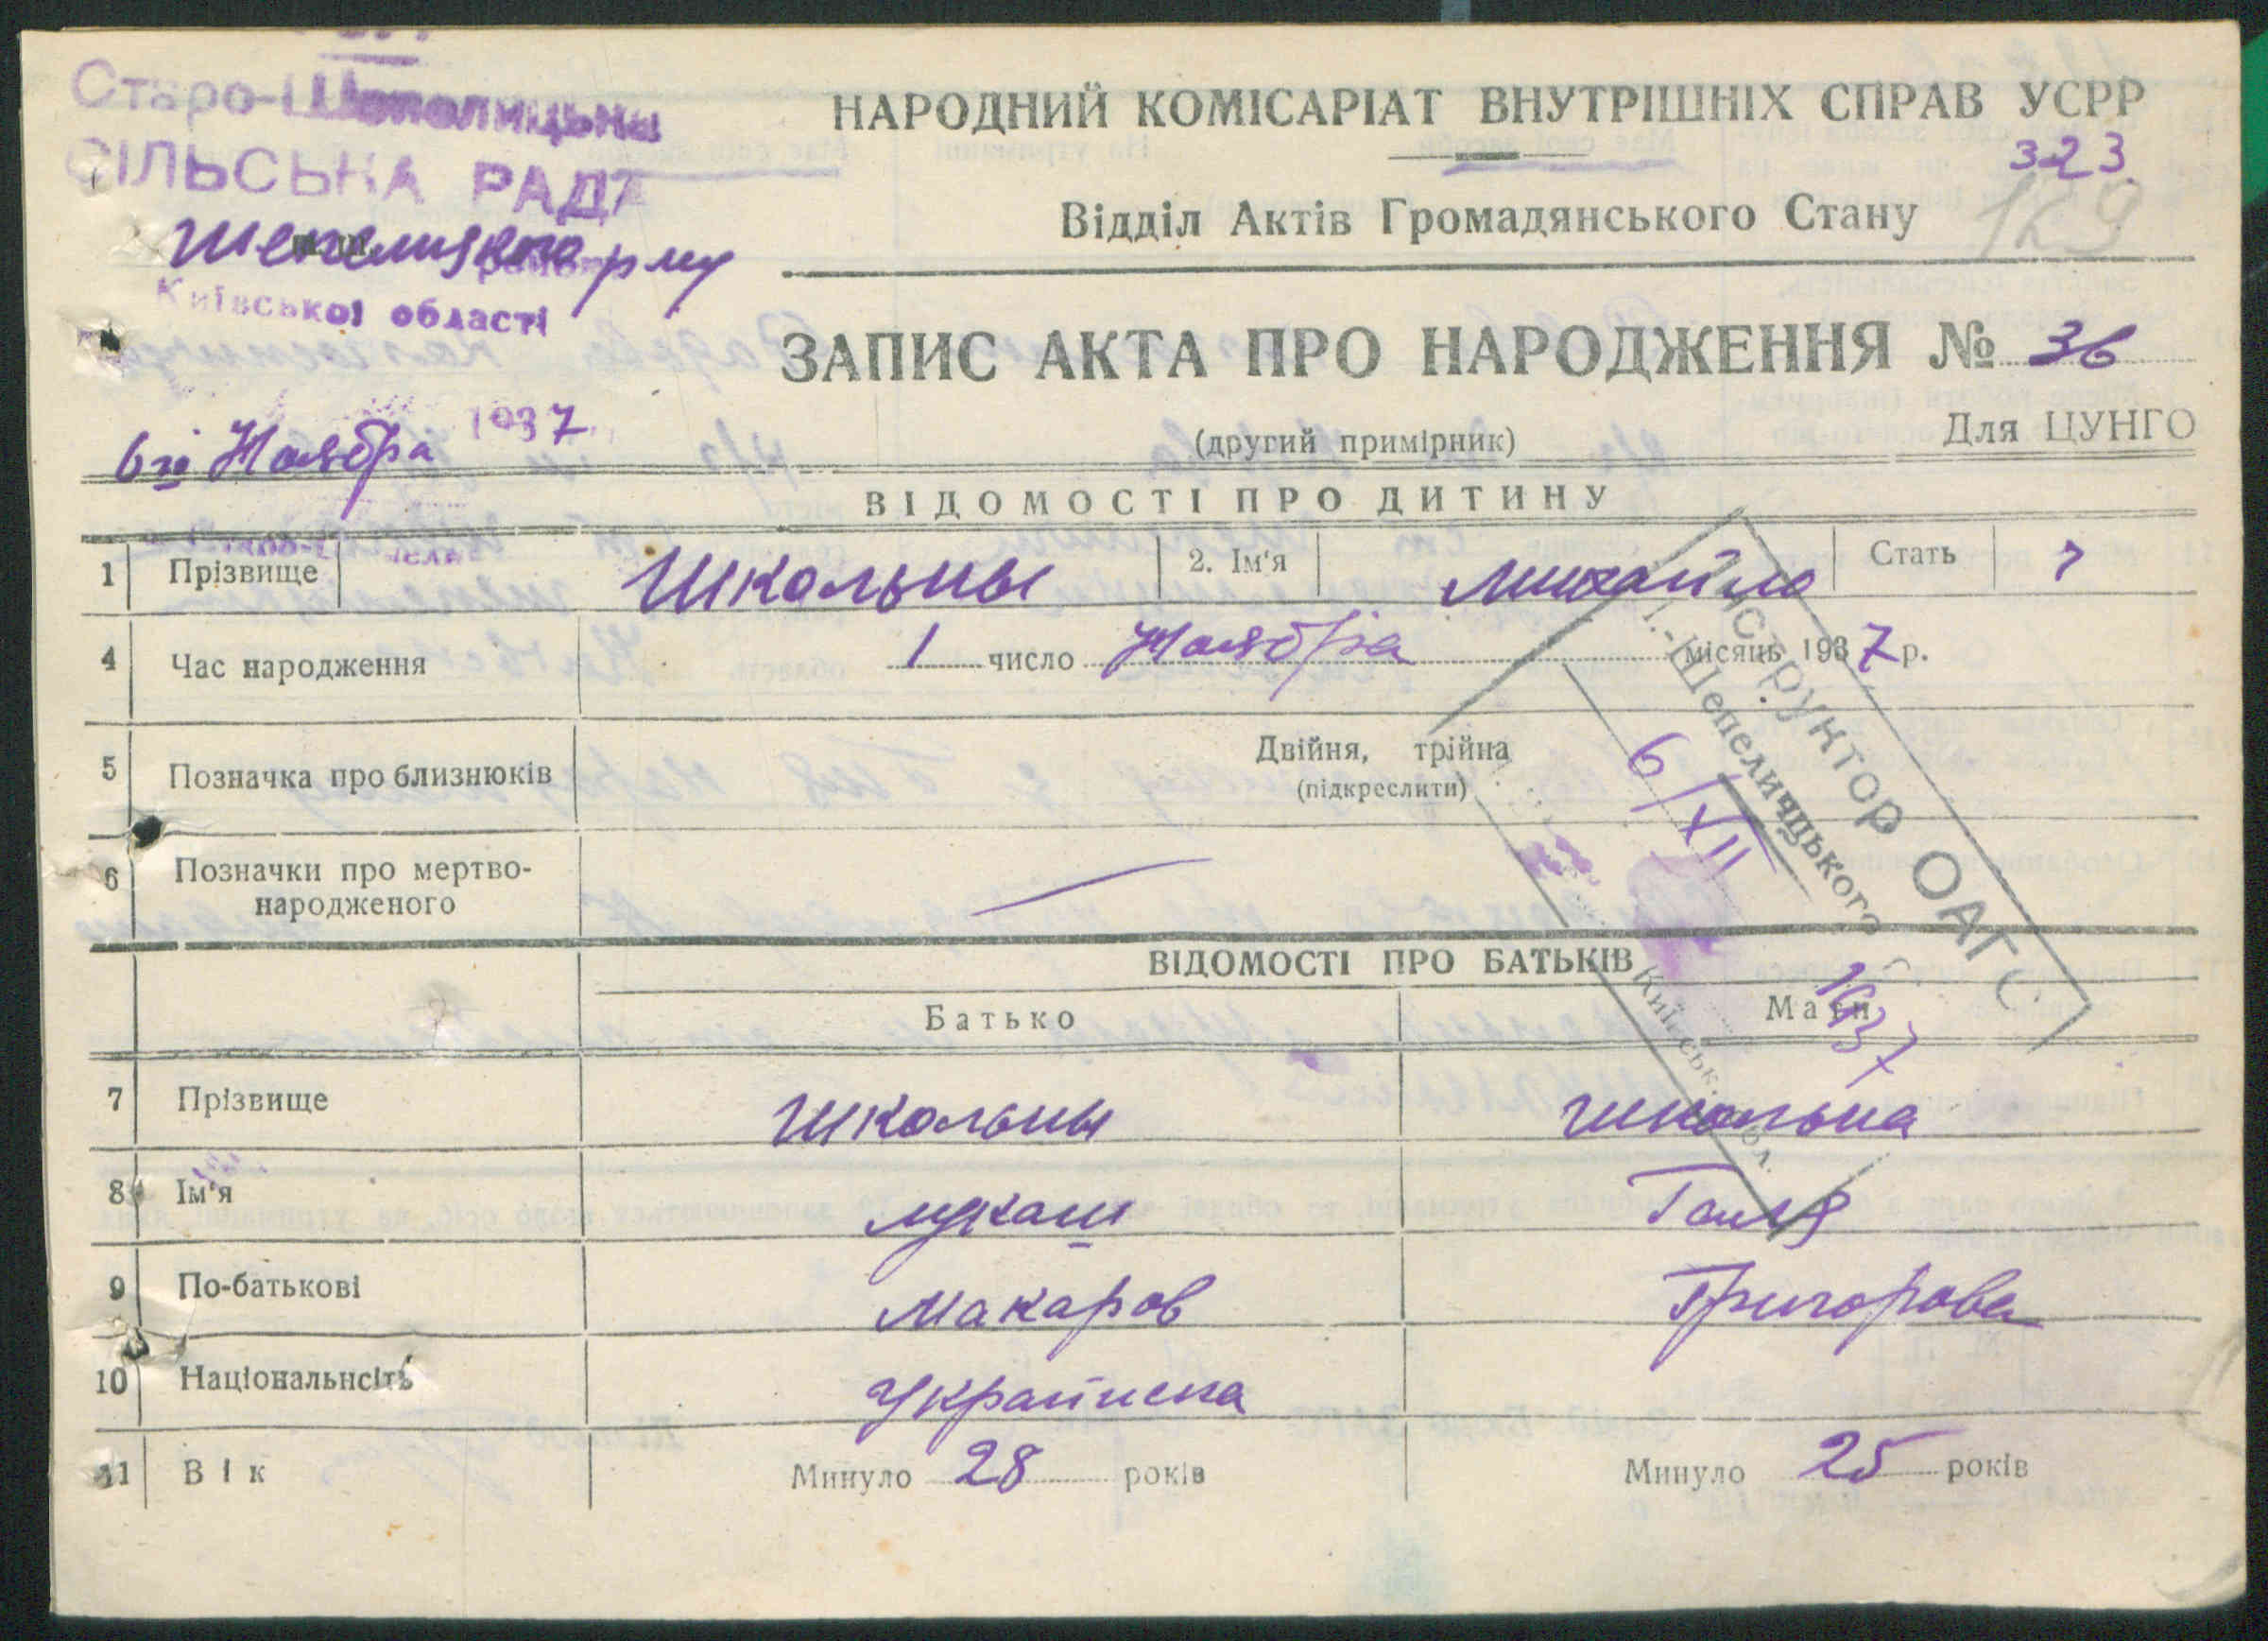 Старо-Шепелицька
СІЛЬСЬКА РАДА
Шепелицкого р му
Київської області
НАРОДНИЙ КОМІСАРІАТ ВНУТРІШНІХ СПРАВ УСРР
323
Відділ Актів Громадянського Стану
129
ЗАПИС АКТА ПРО НАРОДЖЕННЯ № 36
6го Ноября 1937
(другий примірник)
Для ЦУНГО
ВІДОМОСТІ ПРО ДИТИНУ
1 Прізвище Школьны 2. Ім'я Михайло Стать
4 Час народження 1 число Ноября місяць 1937 р.
5 Позначка про близнюків Двійня, трійня
(підкреслити)
6 Позначки про мертво-
народженого
Інструктор ОАГС
Шепелицького
6/XII 1937
Київськ. обл.
ВІДОМОСТІ ПРО БАТЬКІВ
Батько Мати
7 Прізвище Школьны Школьна
8 Ім'я Лукаш Галя
9 По-батькові Макаров Григорова
10 Національнсіть Украинска
11 Вік Минуло 28 років Минуло 25 років